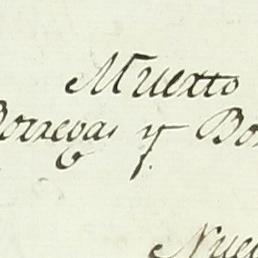 Muerto
Borregas y Bo
Nue